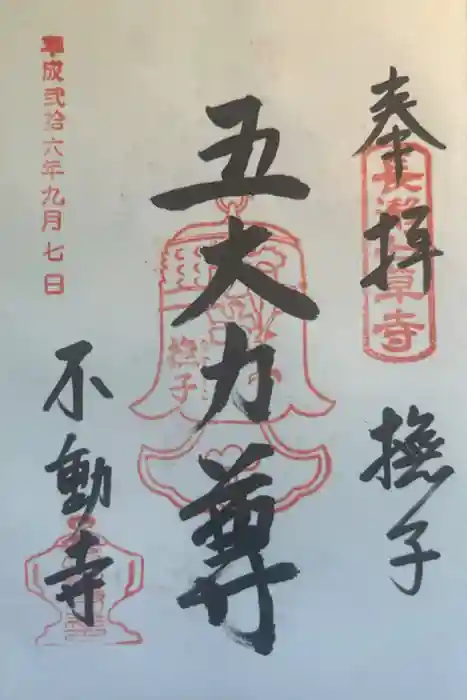 奉拝 撫子
長瀞七草寺
五大力尊
撫子
平成弐拾六年九月七日
不動寺